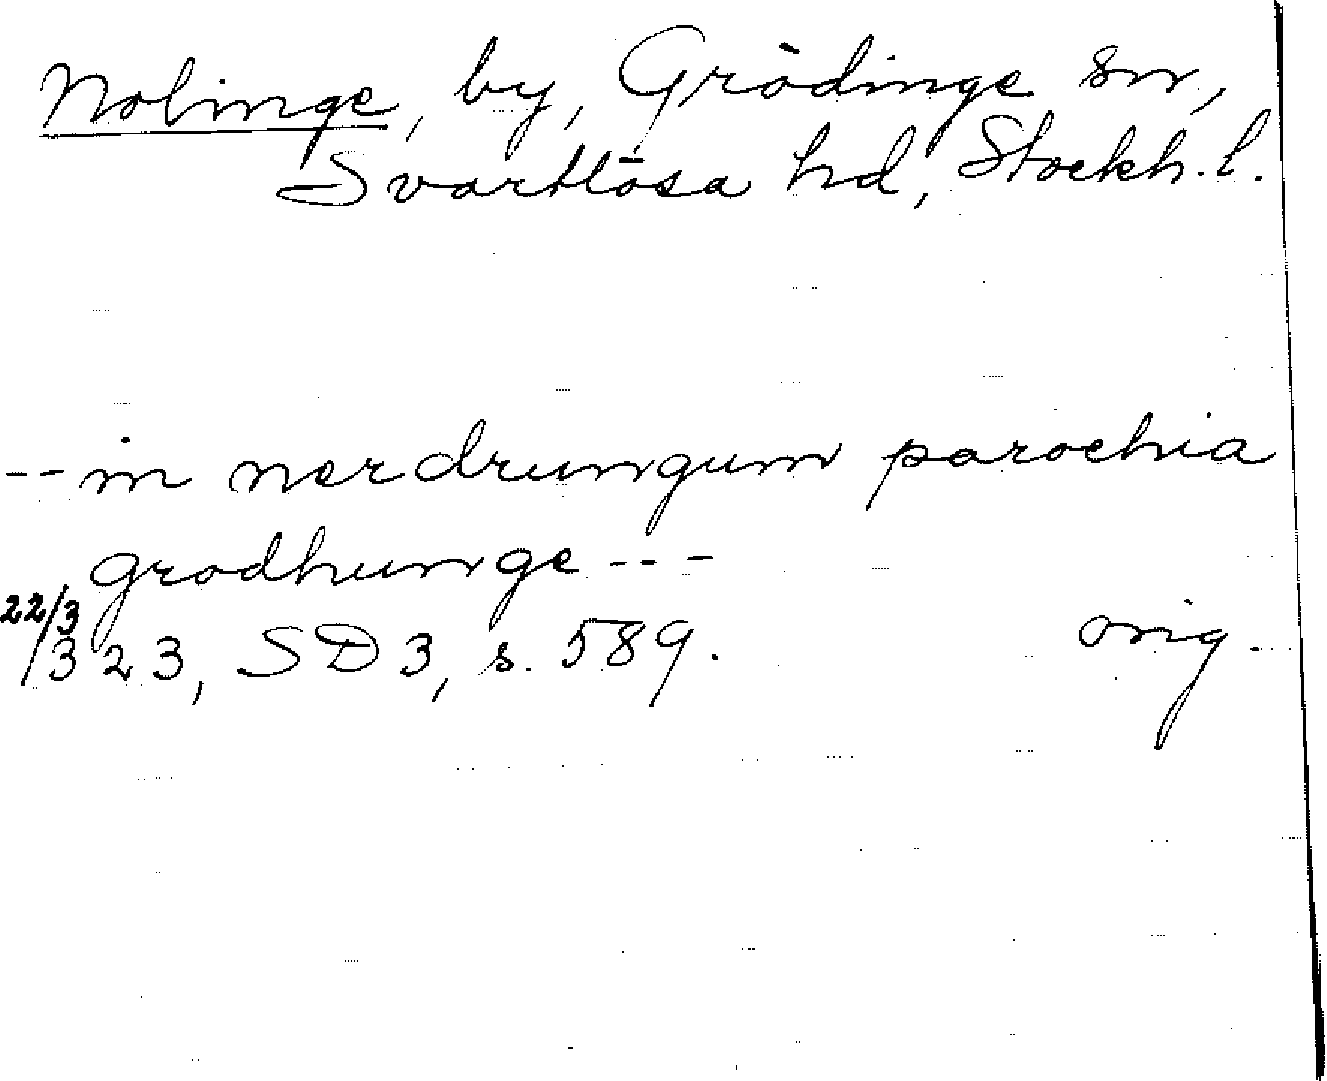 Nolinge, by, Grödinge sn,
Svartlösa hd, Stockh. l.
-- in nerdrungum parochia
grodhunge ---
22/3
1323, SD 3, s. 589. orig.